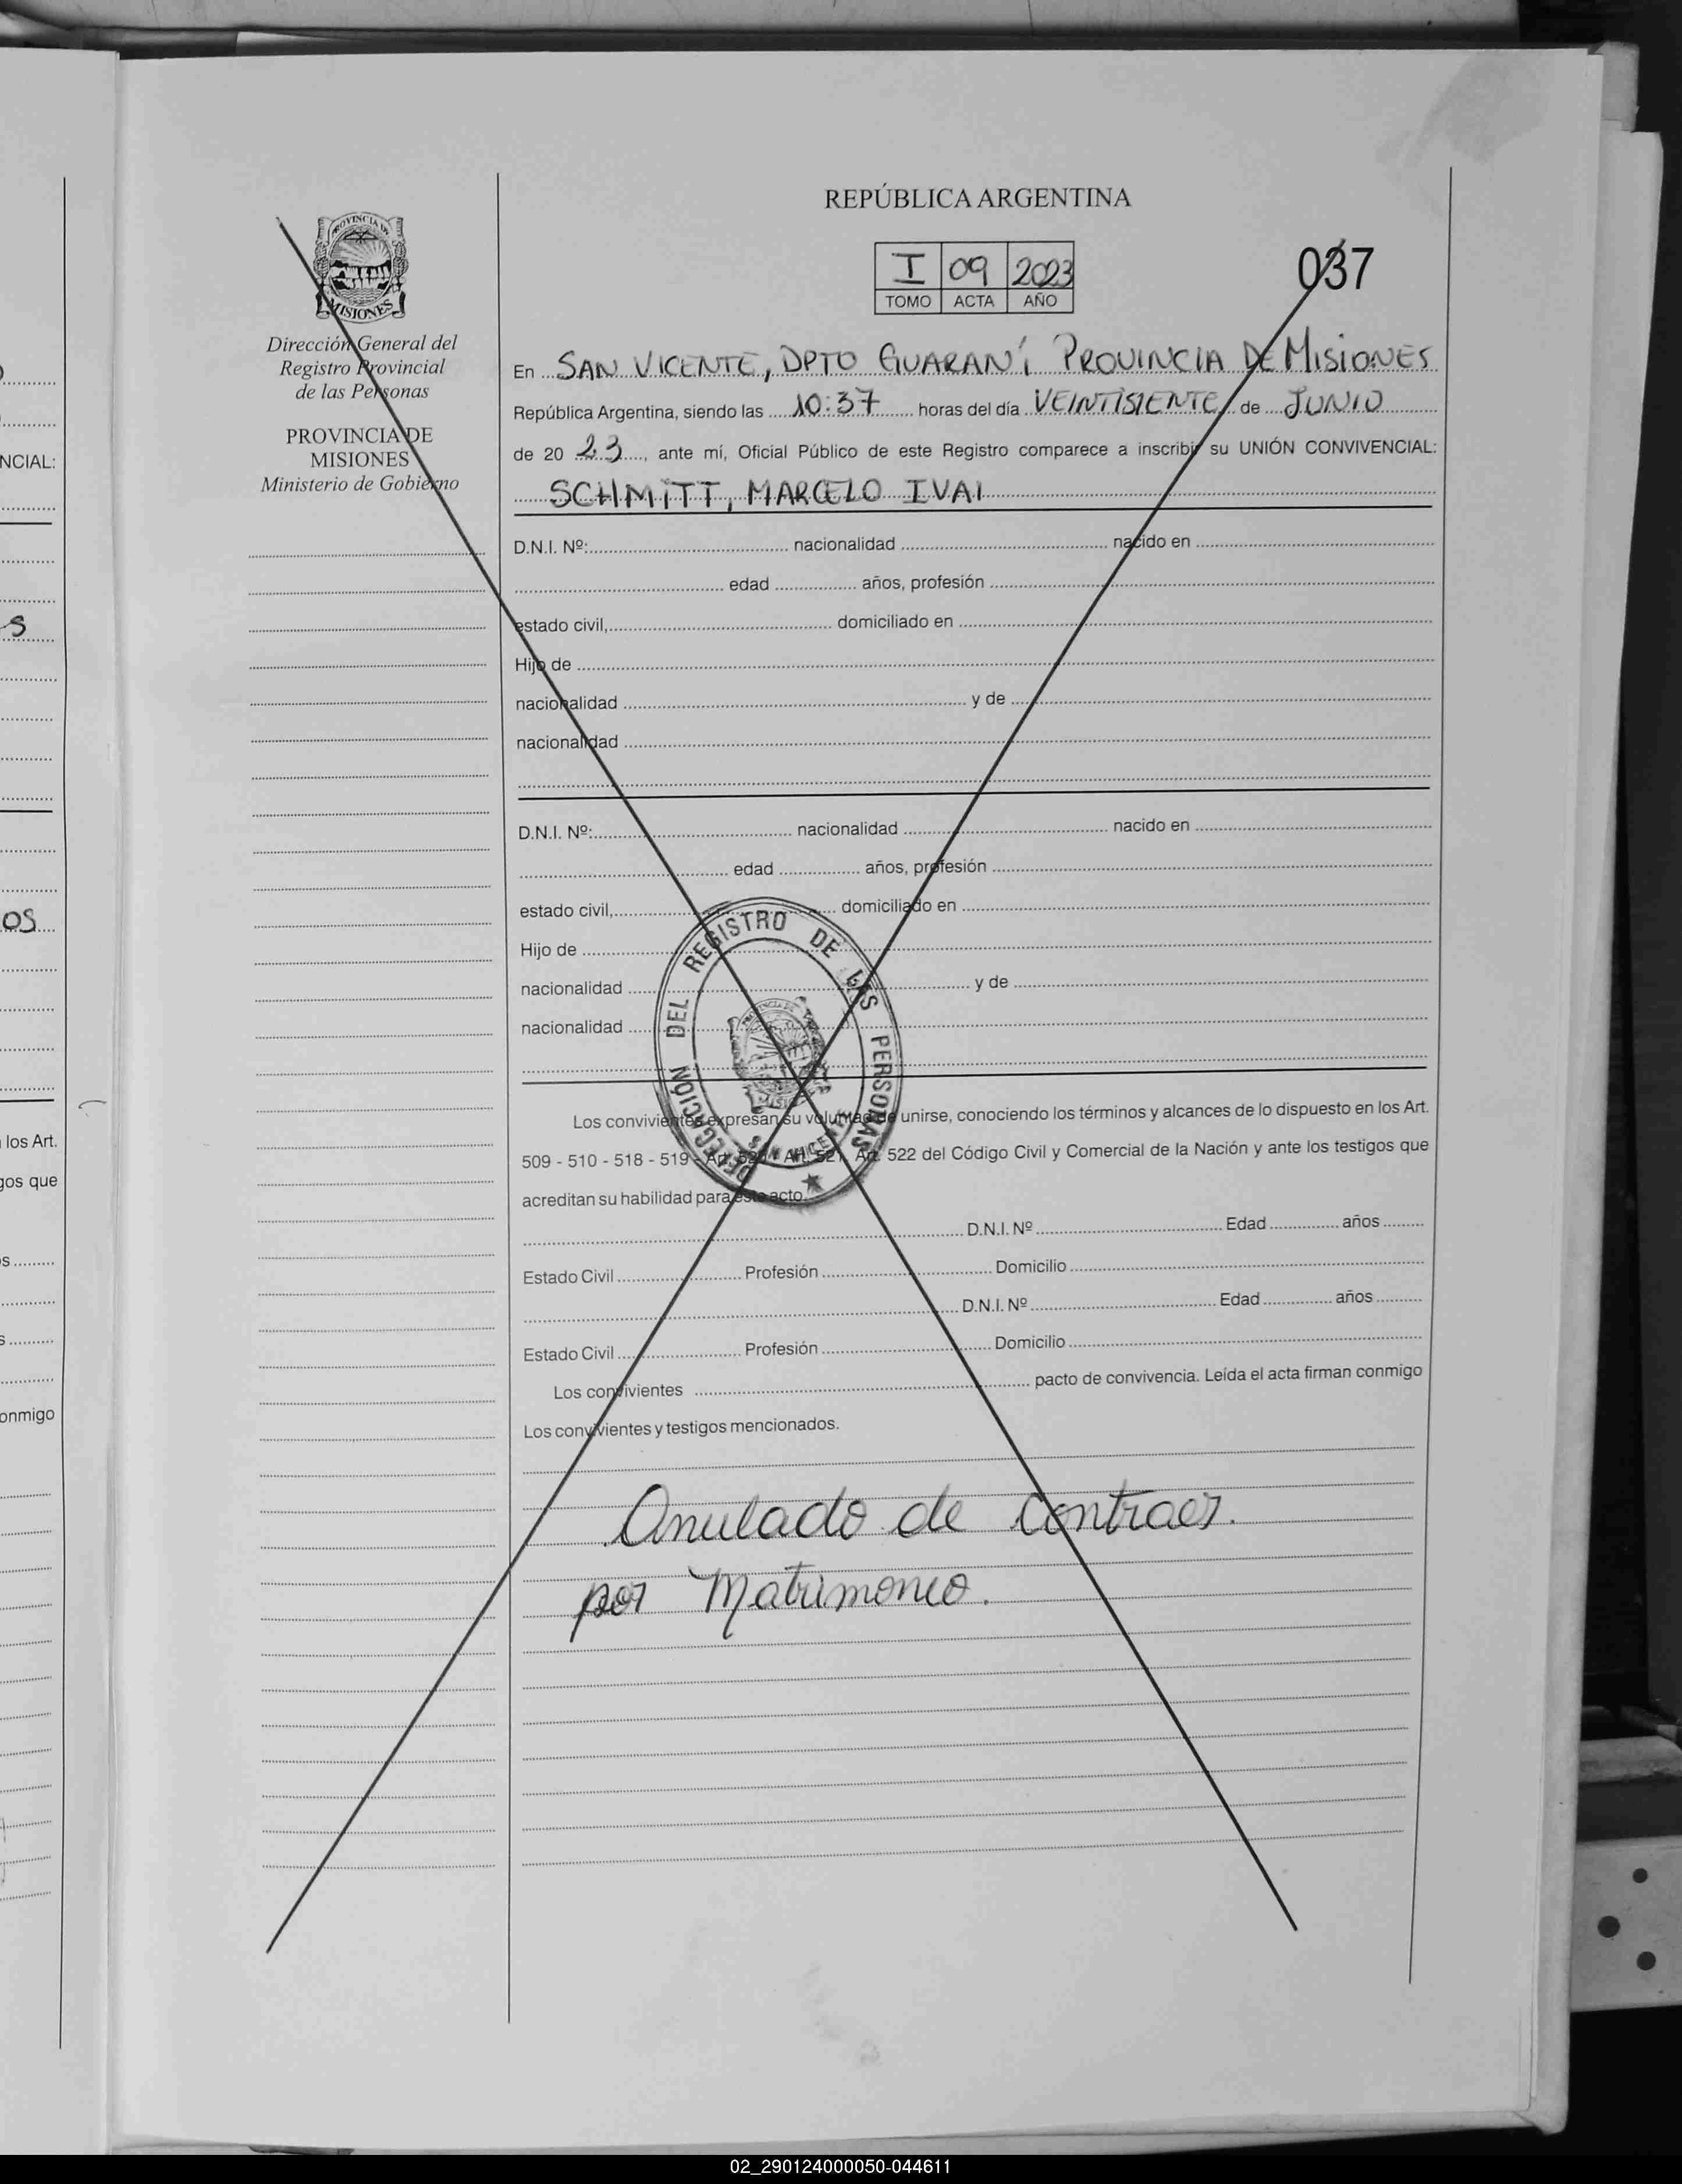 REPÚBLICA ARGENTINA
PROVINCIA DE
MISIONES
I 09 2023
TOMO ACTA AÑO
037
Dirección General del
Registro Provincial
de las Personas
PROVINCIA DE
MISIONES
Ministerio de Gobierno
En SAN VICENTE, DPTO GUARANÍ PROVINCIA DE MISIONES
República Argentina, siendo las 10:37 horas del día VEINTISIENTE de JUNIO
de 20 23, ante mí, Oficial Público de este Registro comparece a inscribir su UNIÓN CONVIVENCIAL:
SCHMITT, MARCELO IVAI
D.N.I. Nº: nacionalidad nacido en
edad años, profesión
estado civil, domiciliado en
Hijo de
nacionalidad y de
nacionalidad
D.N.I. Nº: nacionalidad nacido en
edad años, profesión
estado civil, domiciliado en
Hijo de
nacionalidad y de
nacionalidad
DELEGACIÓN DEL REGISTRO DE LAS PERSONAS
SAN VICENTE
Los convivientes expresan su voluntad de unirse, conociendo los términos y alcances de lo dispuesto en los Art.
509 - 510 - 518 - 519 - Art. 520 - Art. 521, Art. 522 del Código Civil y Comercial de la Nación y ante los testigos que
acreditan su habilidad para este acto.
D.N.I. Nº Edad años
Estado Civil Profesión Domicilio
D.N.I. Nº Edad años
Estado Civil Profesión Domicilio
Los convivientes pacto de convivencia. Leída el acta firman conmigo
Los convivientes y testigos mencionados.
Anulado de contraer.
por Matrimonio.
NCIAL:
s
os
los Art.
gos que
s
s
onmigo
02_290124000050-044611